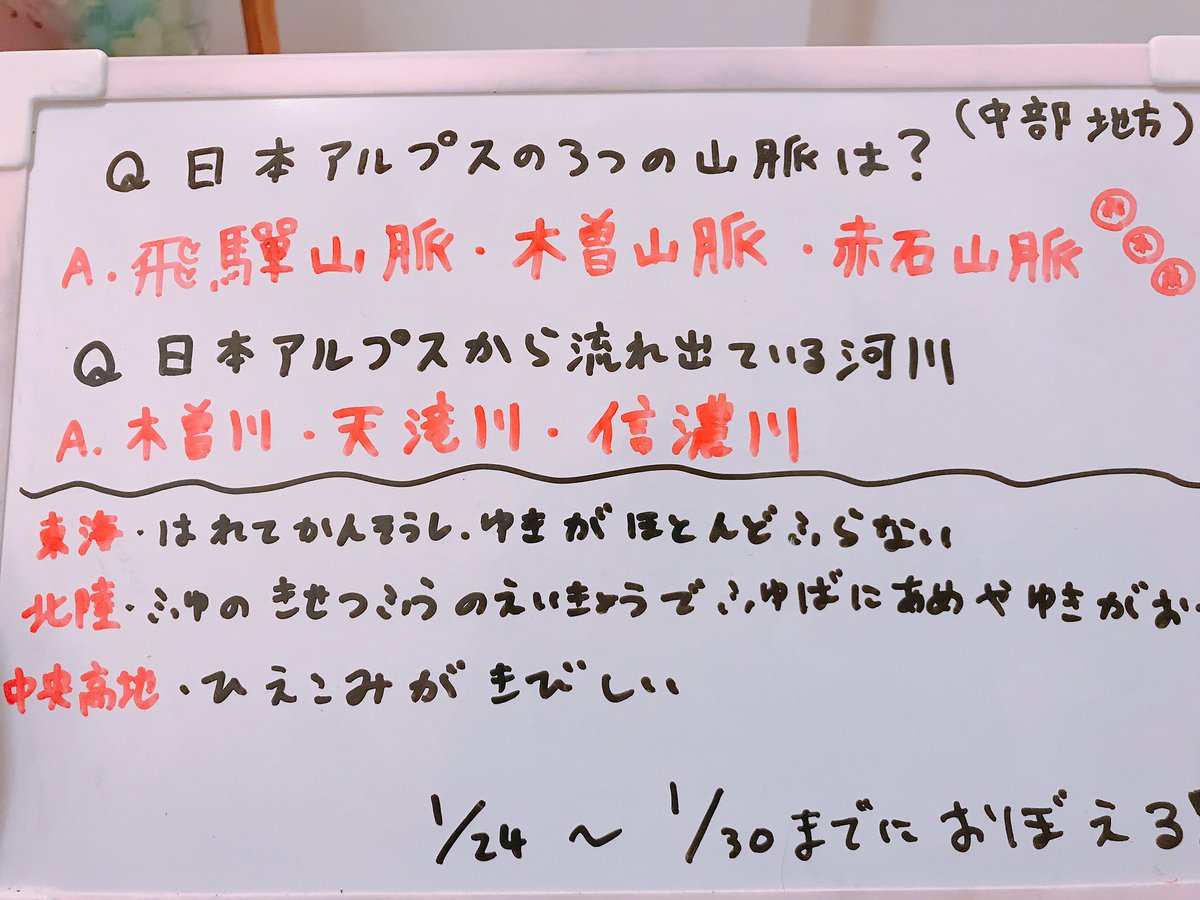 (中部地方)
Q 日本アルプスの3つの山脈は?
A.飛騨山脈・木曽山脈・赤石山脈
Q 日本アルプスから流れ出ている河川
A.木曽川・天滝川・信濃川
東海・はれてかんそうし、ゆきがほとんどふらない
北陸・ふゆのきせつふうのえいきょうでふゆばにあめやゆきがお
中央高地・ひえこみがきびしい
1/24〜1/30までにおぼえる